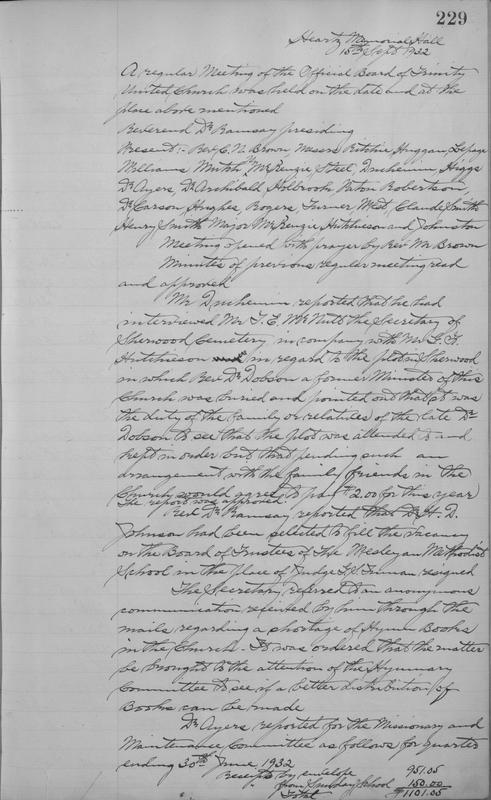 229
Heartz Memorial Hall
15th Sept 1932
A regular Meeting of the Official Board of Trinity
United Church was held on the date and at the
place above mentioned
Reverend Dr Ramsay presiding
Present:- Rev. C. N. Brown Messrs Ritchie, Huggan, Lepage
Williams Mutch McKenzie Steel, Duchemin, Higgs
Dr Ayers, Dr Archibald Holbrook Paton Robertson,
Dr Carson Hughes, Rogers, Turner West, Claude Smith
Henry Smith Major McKenzie Hutcheson and Johnston
Meeting opened with prayer by Rev. Mr Brown
Minutes of previous regular meeting read
and approved
Mr Duchemin reported that he had
interviewed Mr T. E. McNutt the Secretary of
Sherwood Cemetery, in company with Mr G. F.
Hutcheson in regard to the plot in Sherwood
in which Rev. Dr Dobson a former Minister of this
Church was buried and pointed out that it was
the duty of the family or relatives of the late Dr
Dobson to see that the plot was attended to and
kept in order but that pending such an
arrangement with the family friends in the
Church would agree to pay $2.00 for this year
The report was approved
Rev. Dr Ramsay reported that H. D.
Johnson had been selected to fill the vacancy
on the Board of Trustees of The Wesleyan Methodist
School in the place of Judge Inman resigned
The Secretary referred to an anonymous
communication received by him through the
mails regarding a shortage of Hymn Books
in the Church. It was ordered that the matter
be brought to the attention of the Hymnary
Committee to see if a better distribution of
Books can be made
Dr Ayers reported for the Missionary and
Maintenance Committee as follows for quarter
ending 30th June, 1932
Receipts by envelope 951.05
from Sunday School 150.00
Total $1101.05